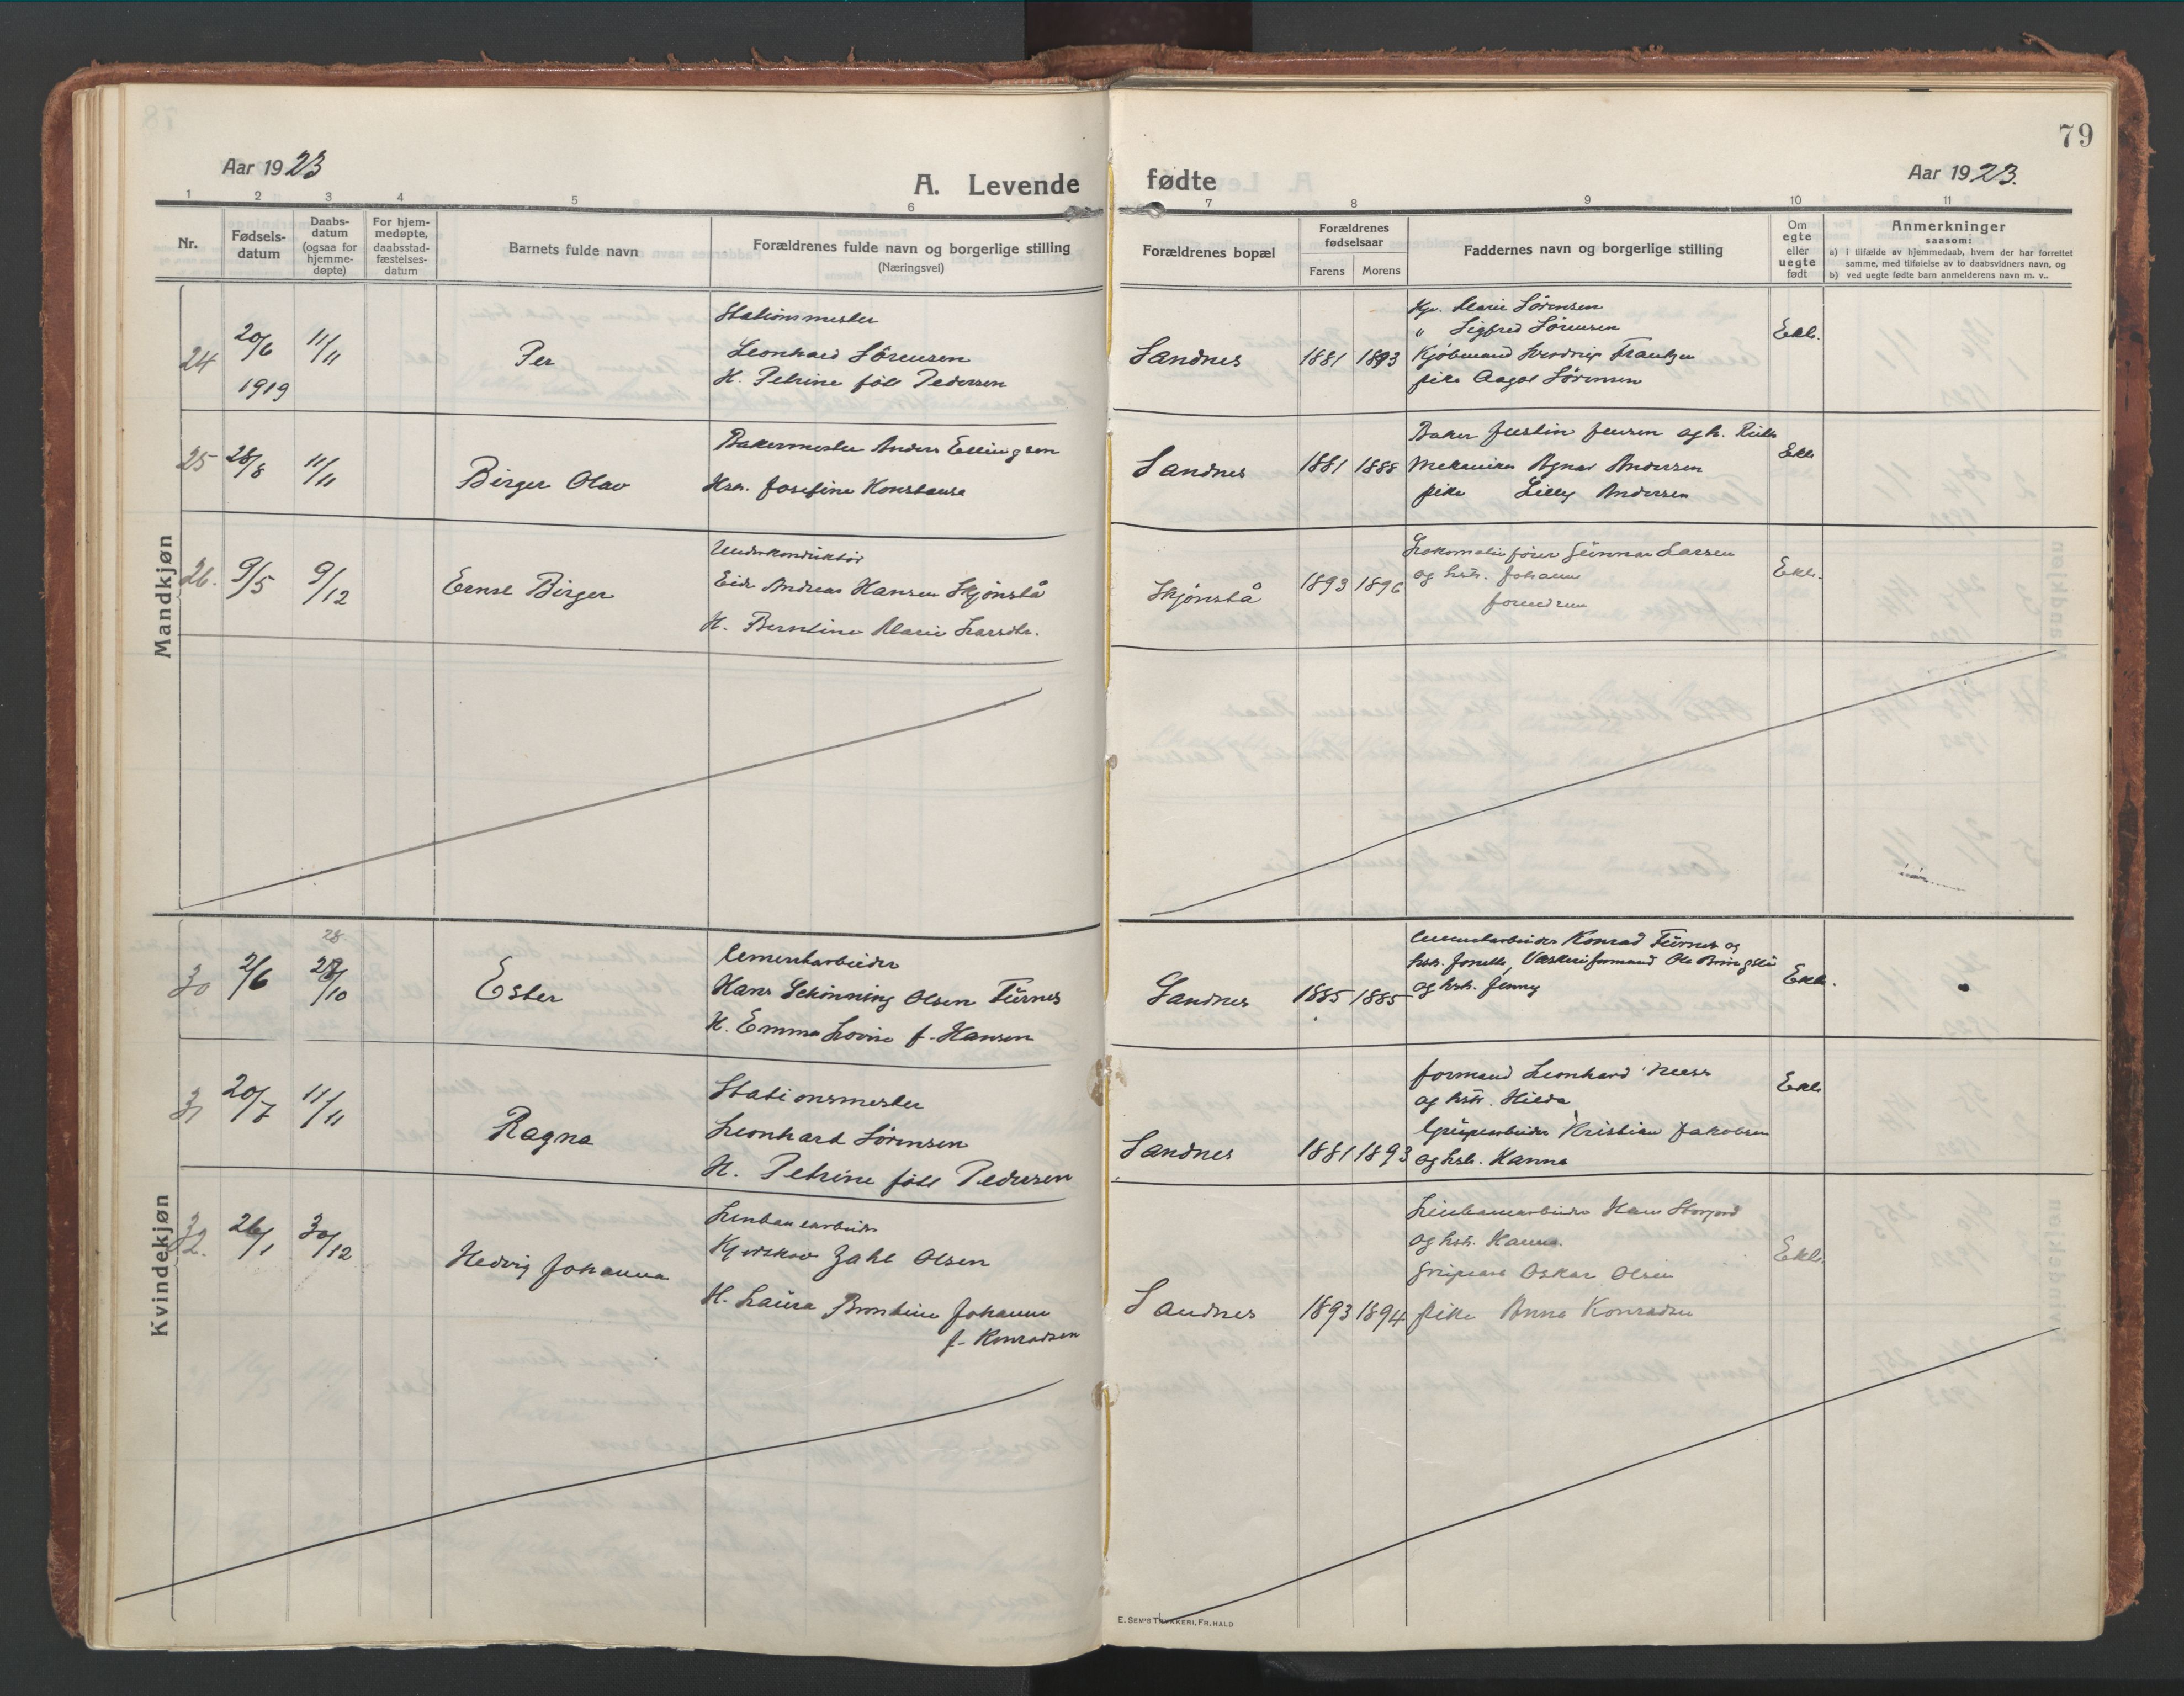 Aar 1923
A. Levende
1 2 3 4 5 6
Nr.
Fødsels-
datum
Daabs-
datum
(ogsaa for
hjemme-
døpte)
For hjem-
medøpte,
daabsstad-
fæstelses-
datum
Barnets fulde navn
Forældrenes fulde navn og borgerlige stilling
(Næringsvei)
Mandkjøn
24 20/6 1919 11/11 Per
Stationsmester
Leonhard Sörensen
H. Petrine född Pedersen
25 28/8 11/11 Birger Olav
Bakermester Anders Ellingsen
Hstr. Josefine Konstanse
26. 9/5 9/12 Ernst Birger
Underkonduktör
Eide Andreas Hansen Skjönstå
H. Berntine Marie Larsdtr.
Kvindekjøn
30 2/6 28/10 Ester
28
Cementarbeider
Hans Schönning Olsen Furnes
H. Emma Lovise f. Hansen
31 20/7 11/11 Ragna
Stationsmester
Leonhard Sörensen
H. Petrine född Pedersen
32. 26/1 30/12 Hedvig Johanna
Zahl Olsen
H. Laura Berntine Johanne
f. Konradsen
79
fødte
Aar 1923.
7 8 9 10 11
Forældrenes bopæl
Forældrenes
fødselsaar
Farens Morens
Faddernes navn og borgerlige stilling
Om
egte
eller
uegte
født
Anmerkninger
saasom:
a) i tilfælde av hjemmedaab, hvem der har forrettet
samme, med tilføielse av to daabsvidners navn, og
b) ved uegte fødte barn anmelderens navn m. v..
Sandnes 1881 1893
Hr. Marie Sörensen
" Sigfred Sörensen
Kjöbmand Frantzen
pike Aagot Sörensen
Ekte.
Sandnes 1881 1888
Baker Justin Jensen og h.
Mekaniker Agnar Andersen
pike Lilly Andersen
Ekte
Skjönstå 1893 1896
Lokomotivförer Gunnar Larsen
og hstr. Johanne
foreldrene
Ekte.
Sandnes 1885 1885
Cementarbeider Konrad Furnes og
hstr. Vaskeriformand Ole Bringsli
og hstr. Jenny
Ekte.
Sandnes 1881 1893
formand Leonhard
og hstr. Hilda
Grubearbeider Kristian Jakobsen
og hstr. Hanna
Ekte
Sandnes 1893 1894
Linebanearbeider Hans Storjord
og hstr. Hanna.
Grubearb Oskar Olsen
pike Anna Konradsen
Ekte.
E. SEM'S TRYKKERI, FR. HALD